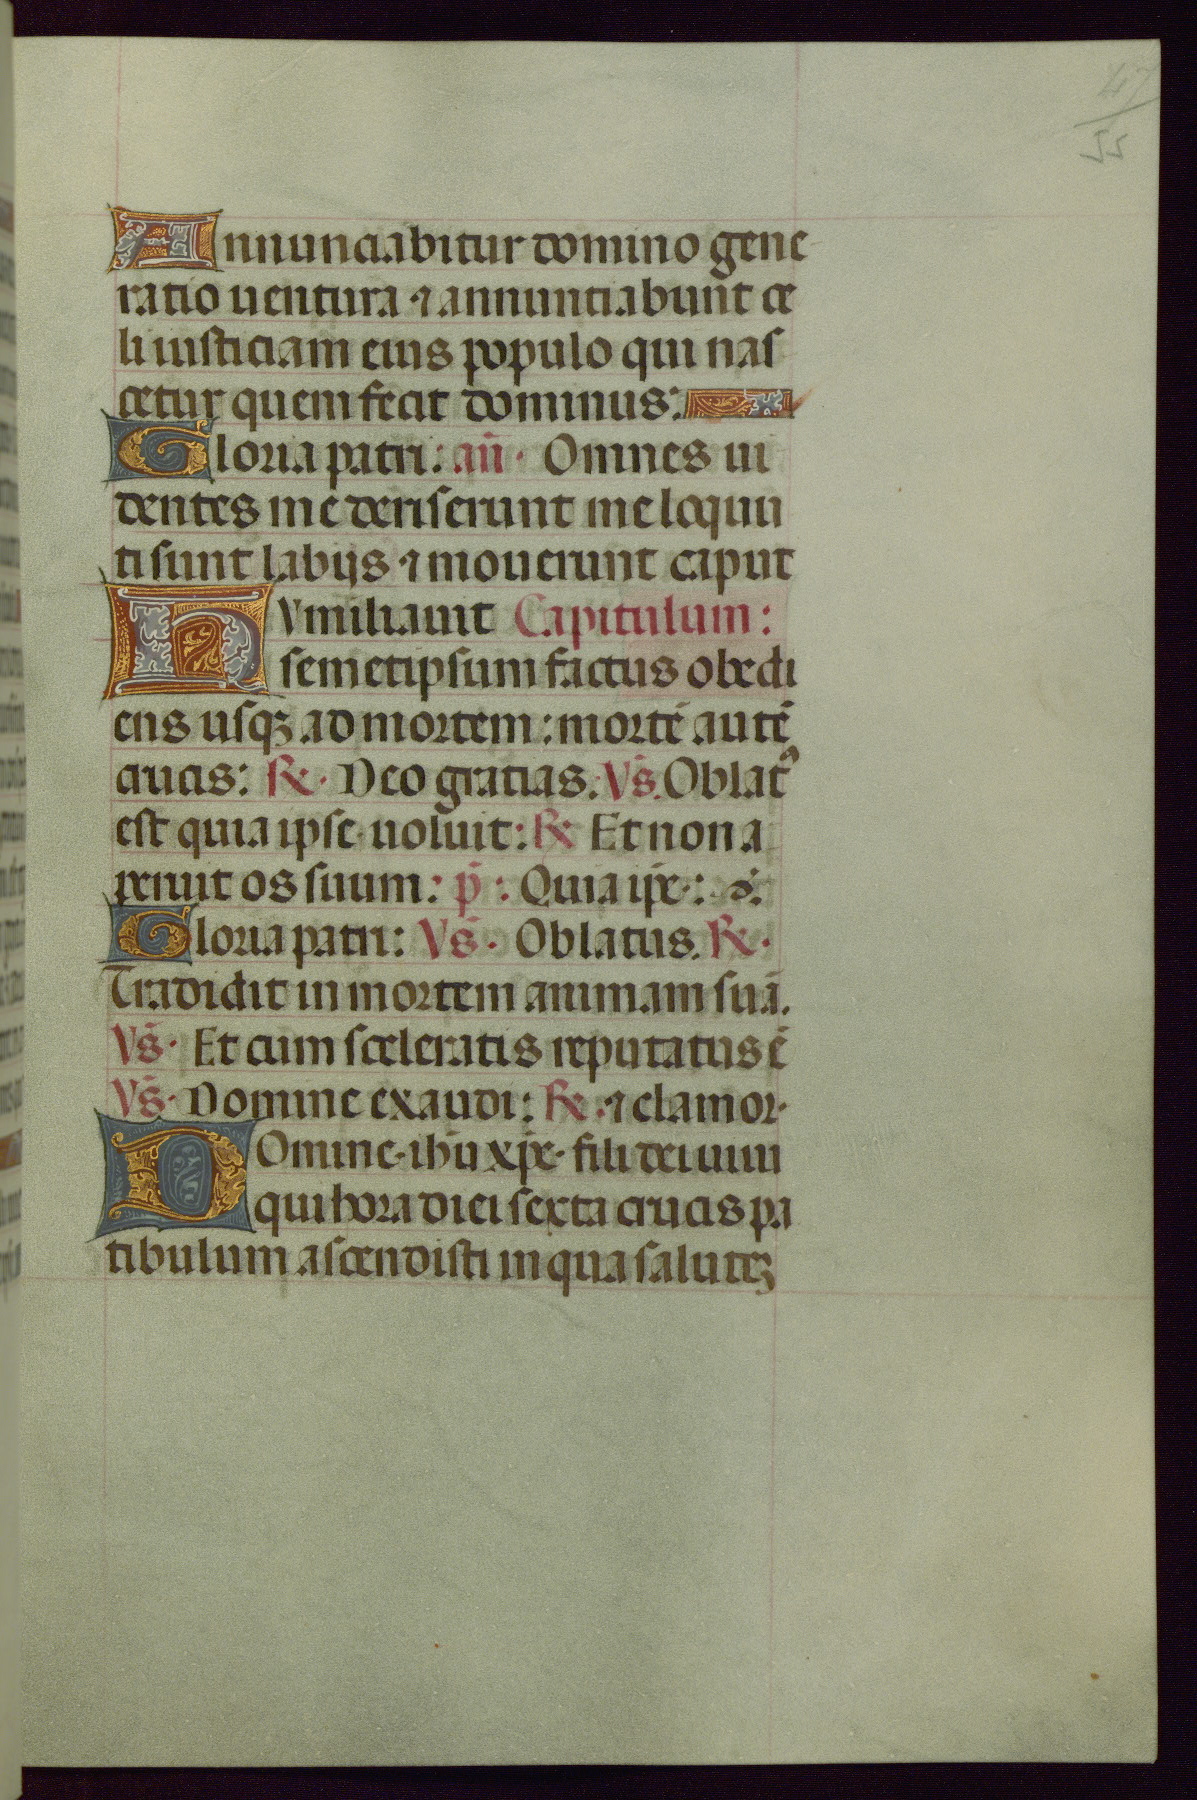 47
55
Annunciabitur domino gene
ratio uentura ⁊ annuntiabunt ce
li iusticiam eius populo qui nas
cetur quem fecit dominus:
Gloria patri: añ. Omnes ui
dentes me deriserunt me loquu
ti sunt labijs ⁊ mouerunt caput
HVmiliauit Capitulum:
semetipsum factus obedi
ens usqꝫ ad mortem: mortē autē
crucis: ℟. Deo gratias. Vs̄. Oblatꝰ
est quia ipse uoluit: ℟ Et non a
peruit os suum: p̄: Quia ip̄e: &:
Gloria patri: Vs̄. Oblatus. ℟.
Tradidit in mortem animam suā.
Vs̄. Et cum sceleratis reputatus ē
Vs̄. Domine exaudi: ℟. ⁊ clamor.
DOmine ihū xp̄e fili dei uiui
qui hora diei sexta crucis pa
tibulum ascendisti in qua saluteꝫ